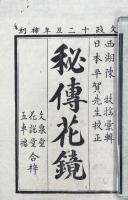 文政十二丑年補刻
西湖陳扶揺彙輯
日本平賀先生校正
秘傳花鏡
文泉堂
花説堂 合梓
五車樓